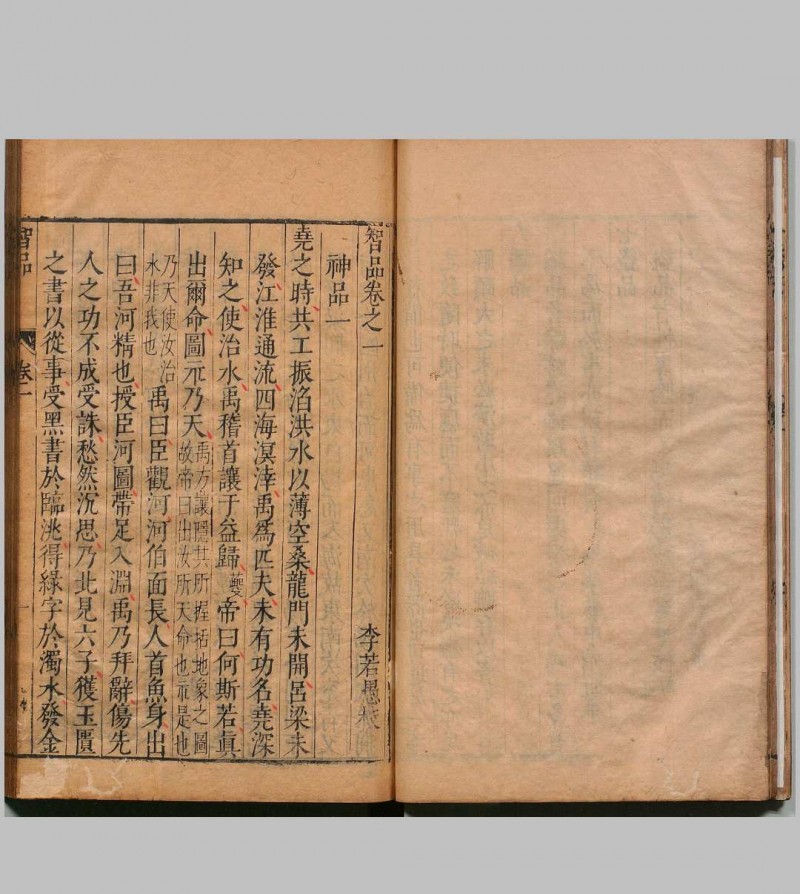 智品卷之一
神品一 李若愚校
堯之時共工振滔洪水以薄空桑龍門未開呂梁未
發江淮通流四海溟涬禹爲匹夫未有功名堯深
知之使治水禹稽首讓于益歸夔帝曰何斯若真
出爾命圖示乃天禹方讓隱共所握括地象之圖
故帝曰出汝所天命也示是也
乃天使汝治
水非我也禹曰臣觀河河伯面長人首魚身出
曰吾河精也授臣河圖帶足入淵禹乃拜辭傷先
人之功不成受誅愁然沉思乃北見六子獲玉匱
之書以從事受黑書於臨洮得綠字於濁水發金
智品 卷一 一